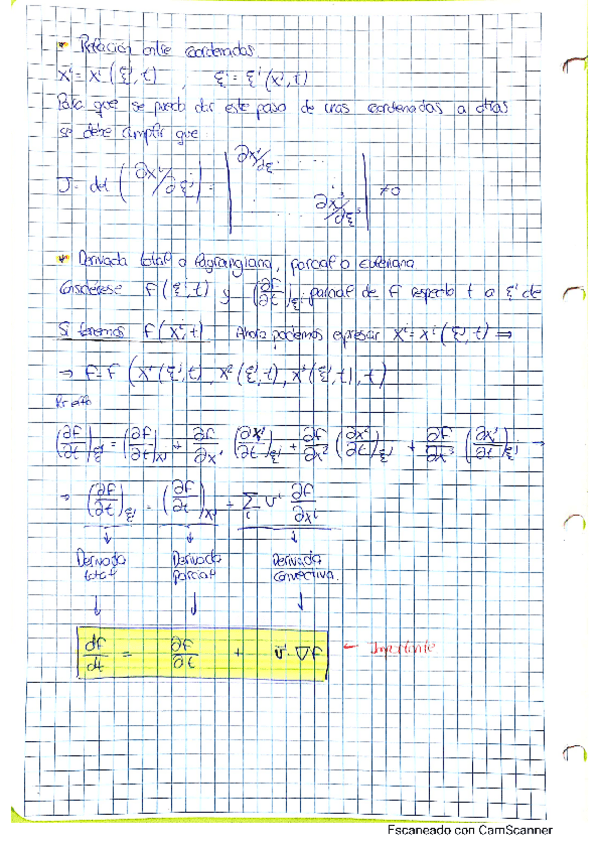 * Relación entre coordenadas.
xⁱ = xⁱ (ξⁱ, t) , ξⁱ = ξⁱ (xⁱ, t)
Para que se pueda dar este paso de unas coordenadas a otras
se debe cumplir que
J = det (∂xⁱ/∂ξⁱ) = | ∂xⁱ/∂ξⁱ ... ∂xⁱ/∂ξⁱ | ≠ 0
* Derivada total o lagrangiana, parcial o euleriana
Considérese f(ξⁱ, t) y (∂f/∂t)_ξⁱ parcial de f respecto t a ξⁱ de
Si tenemos f(xⁱ, t). Ahora podemos expresar xⁱ = xⁱ(ξⁱ, t) ⇒
⇒ f = f (x¹(ξⁱ, t), x²(ξⁱ, t), x³(ξⁱ, t), t)
Por ello
(∂f/∂t)_ξⁱ = (∂f/∂t)_xⁱ + ∂f/∂x¹ (∂x¹/∂t)_ξⁱ + ∂f/∂x² (∂x²/∂t)_ξⁱ + ∂f/∂x³ (∂x³/∂t)_ξⁱ →
⇒ (∂f/∂t)_ξⁱ = (∂f/∂t)_xⁱ + Σᵢ vⁱ ∂f/∂xⁱ
Derivada total
Derivada parcial
Derivada convectiva.
df/dt = ∂f/∂t + v · ∇f ← Importante
Escaneado con CamScanner